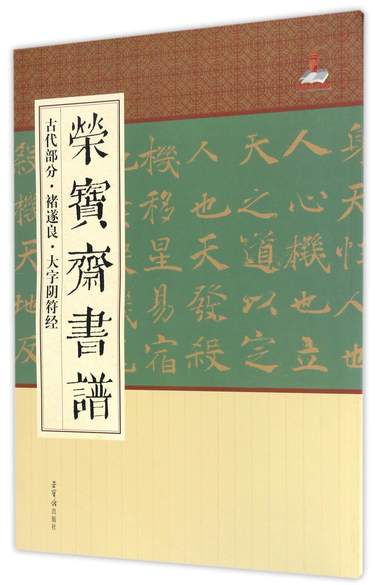 榮寶齋書譜
古代部分·褚遂良·大字阴符经
人心機也立
天之道以定
人也天發殺
機移星易宿
荣宝斋出版社